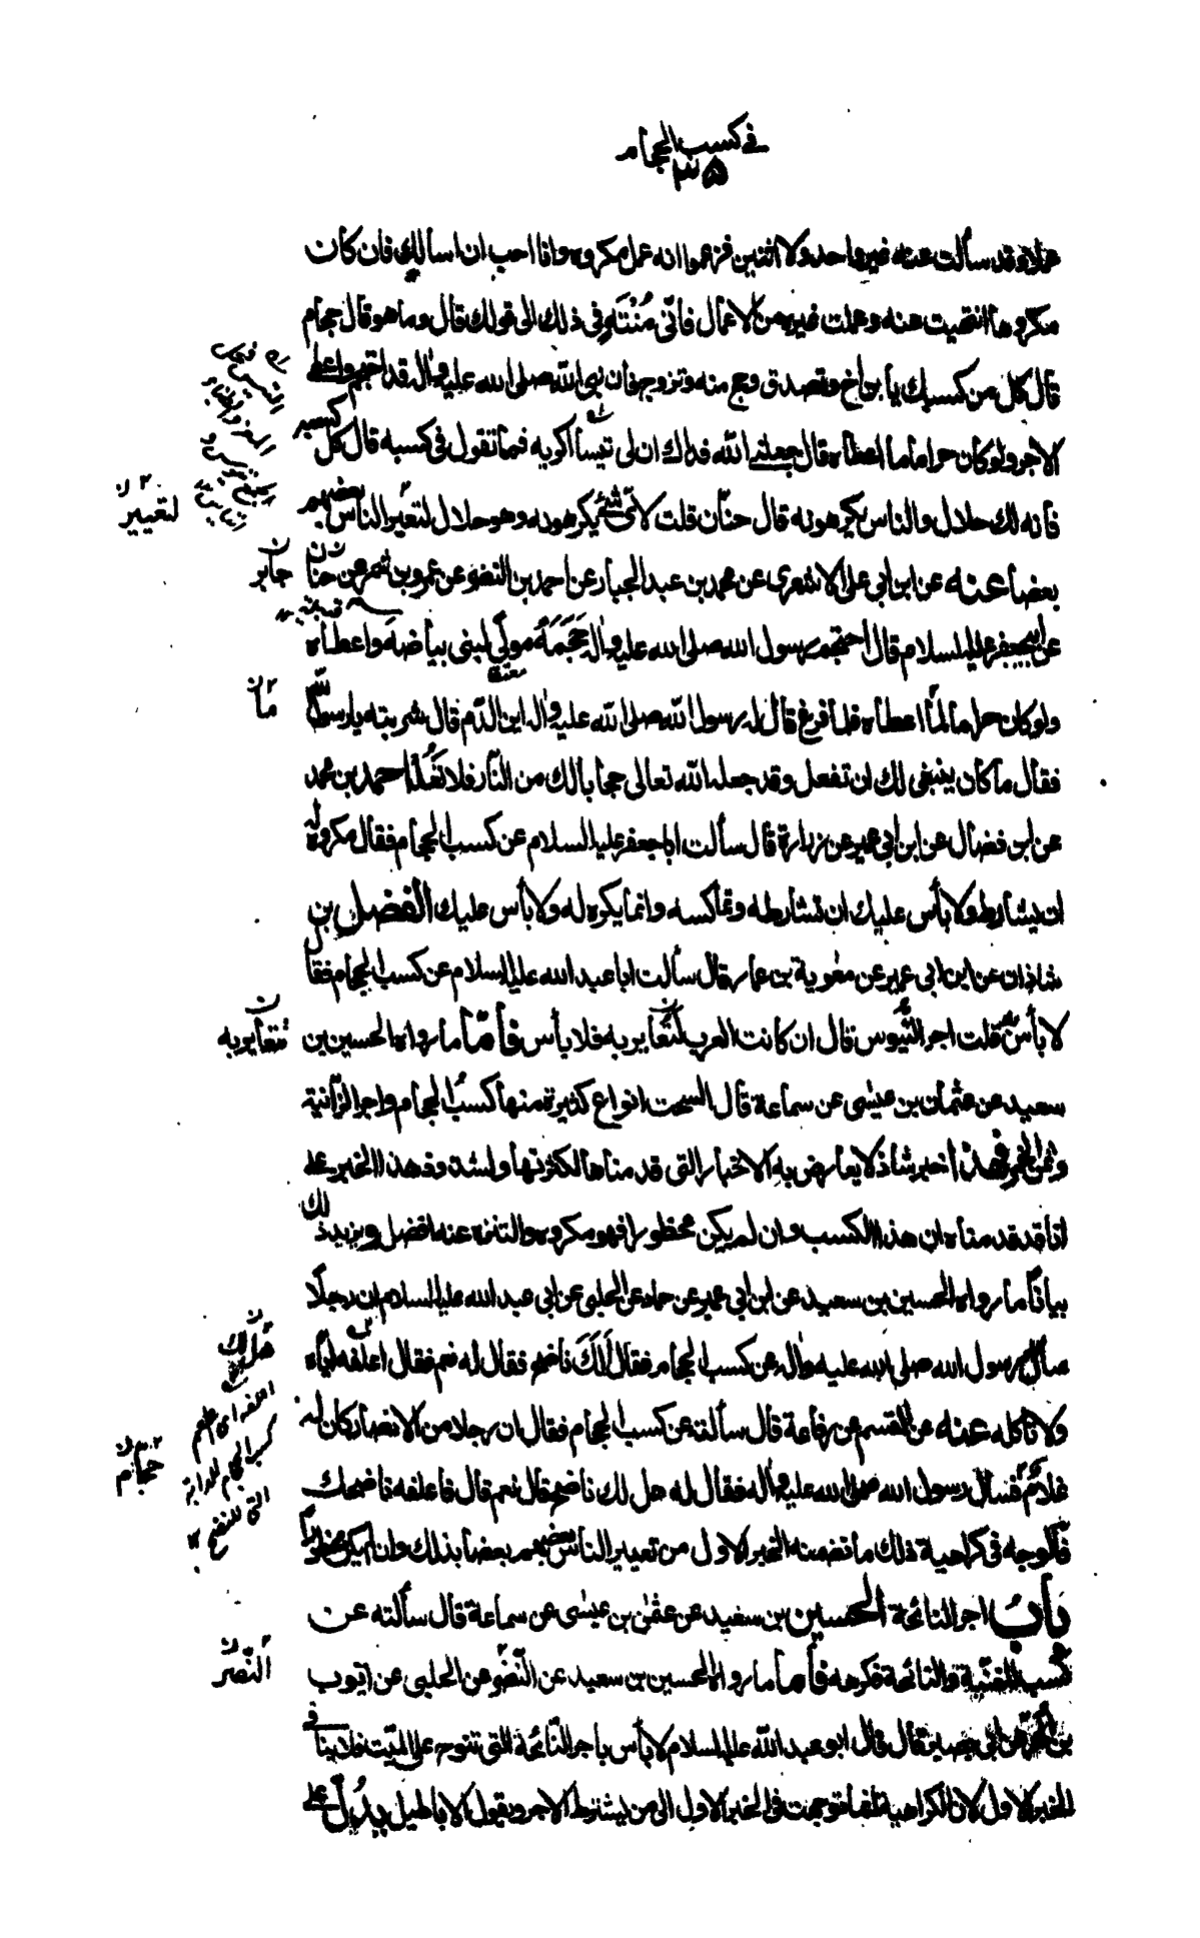 في كسب الحجام
٣٥
عملا وقد سألت عنه غير واحد ولا اثنين فزعموا انه عمل مكروه وانا احب ان اسالك فان كان
مكروها انتهيت عنه وعملت غيره من الاعمال فانّي مُنْتَهٍ في ذلك الى قولك قال وما هو قال حجام
قال كل من كسبك يا بن اخ وتصدق وحج منه وتزوج فان نبي الله صلى الله عليه واله قد احتجم واعطى
الاجر ولو كان حراما ما اعطاه قال جعلني الله فداك ان لي تيسا اكريه فما تقول في كسبه قال كل كسبه
فانه لك حلال والناس يكرهونه قال حنّان قلت لأيّ شيئ يكرهونه وهو حلال لتعيّر الناس بعضهم
بعضا عنه عن ابن ابي على الاشعرى عن محمد بن عبد الجبار عن احمد بن النضر عن عمرو بن شمر عن حنان
عن ابي جعفر عليه السلام قال احتجم رسول الله صلى الله عليه واله حَجَمَهُ مولًى لبني بياضة واعطاه
ولو كان حراما لمّا اعطاه فلما فرغ قال له رسول الله صلى الله عليه واله اين الدّم قال شربته يا رسول الله
فقال ما كان ينبغي لك ان تفعل وقد جعله الله تعالى حجابا لك من النّار فلا تَعُدْ احمد بن محمد
عن ابن فضال عن ابن ابي عمير عن زرارة قال سألت ابا جعفر عليه السلام عن كسب الحجام فقال مكروه له
ان يشارط ولا بأس عليك ان تشارطه وتماكسه وانما يكره له ولا بأس عليك الفضل بن
شاذان عن ابن ابي عمير عن معوية بن عمار قال سألت ابا عبد الله عليه السلام عن كسب الحجام فقال
لا بأس به قلت اجر التّيوس قال ان كانت العرب لتعاير به فلا بأس فأمّا ما رواه الحسين بن
سعيد عن عثمان بن عيسى عن سماعة قال السحت انواع كثيرة منها كسبُ الحجام واجر الزّانية
وثمن الخمر فهذا خبر شاذ لا يعارض به الاخبار التي قدمناها لكثرتها ولشذوذ هذا الخبر على
انا قد قدمناه ان هذا الكسب وان لم يكن محظورا فهو مكروه والتنزه عنه افضل ويزيد ذلك
بيانًا ما رواه الحسين بن سعيد عن ابن ابي عمير عن حماد عن الحلبي عن ابي عبد الله عليه السلام ان رجلًا
سأل رسول الله صلى الله عليه واله عن كسب الحجام فقال لَكَ ناضح فقال له نعم فقال اعلفه ايّاه
ولا تاكله عنه عن القسم عن رفاعة قال سألته عن كسب الحجام فقال ان رجلا من الانصار كان له
غلامٌ فسأل رسول الله صلى الله عليه واله فقال له هل لك ناضح قال نعم قال فاعلفه ناضحك
فالوجه في كراهية ذلك ما تضمنه الخبر الاول من تعيير الناس بعضهم بعضا بذلك وان لم يكن محظوراً
بابُ اجر النائحة الحسين بن سعيد عن عثمن بن عيسى عن سماعة قال سألته عن
كسب المغنّية والنائحة فكرهه فأما ما رواه الحسين بن سعيد عن النّضر عن الحلبي عن ايوب
بن الحر عن ابي بصير قال قال ابو عبد الله عليه السلام لا بأس باجر النّائحة التي تنوح على الميّت فلا ينافي
الخبر الاول لان الكراهية انما توجهت في الخبر الاول الى من يشترط الاجر ويقول الاباطيل يدُلّ على
لتعيير
جابر
مَا
تتعاير به
هل لك
اعلفه اي اطعم
كسب الحجام لدابة
التي للنضح
حجام
النّصر